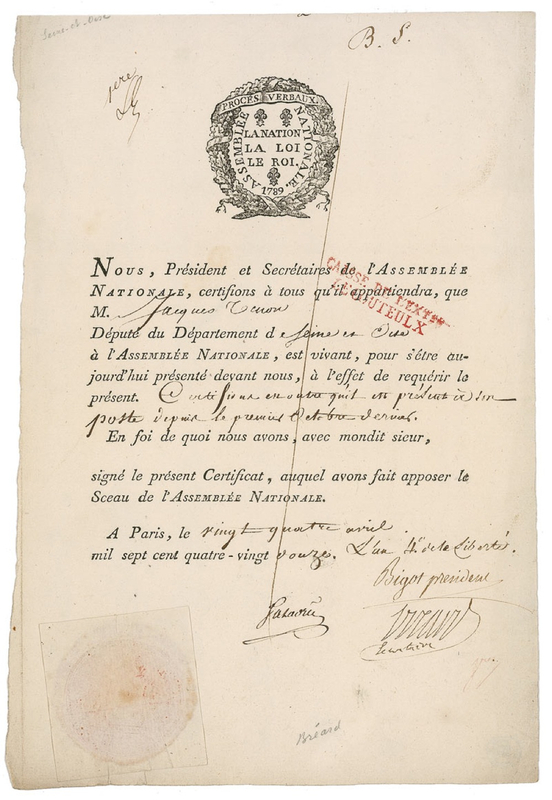 Seine-et-Oise
B. S.
1ere
PROCÈS VERBAUX
ASSEMBLÉE NATIONALE
LA NATION
LA LOI
LE ROI.
1789
NOUS, Président et Secrétaires de l'ASSEMBLÉE
NATIONALE, certifions à tous qu'il appartiendra, que
M. Jacques Tenon
Député du Département de Seine et Oise
à l'ASSEMBLÉE NATIONALE, est vivant, pour s'étre au-
jourd'hui présenté devant nous, à l'effet de requérir le
présent. Certifions en outre qu'il est présent à son
poste depuis le premier Octobre dernier.
En foi de quoi nous avons, avec mondit sieur,
signé le présent Certificat, auquel avons fait apposer le
Sceau de l'ASSEMBLÉE NATIONALE.
A Paris, le vingt quatre avril
mil sept cent quatre-vingt douze. L'an 4e de la Liberté.
CAISSE DE L'EXTRE
LECOUTEULX
Bigot president
secretaire
Bréard